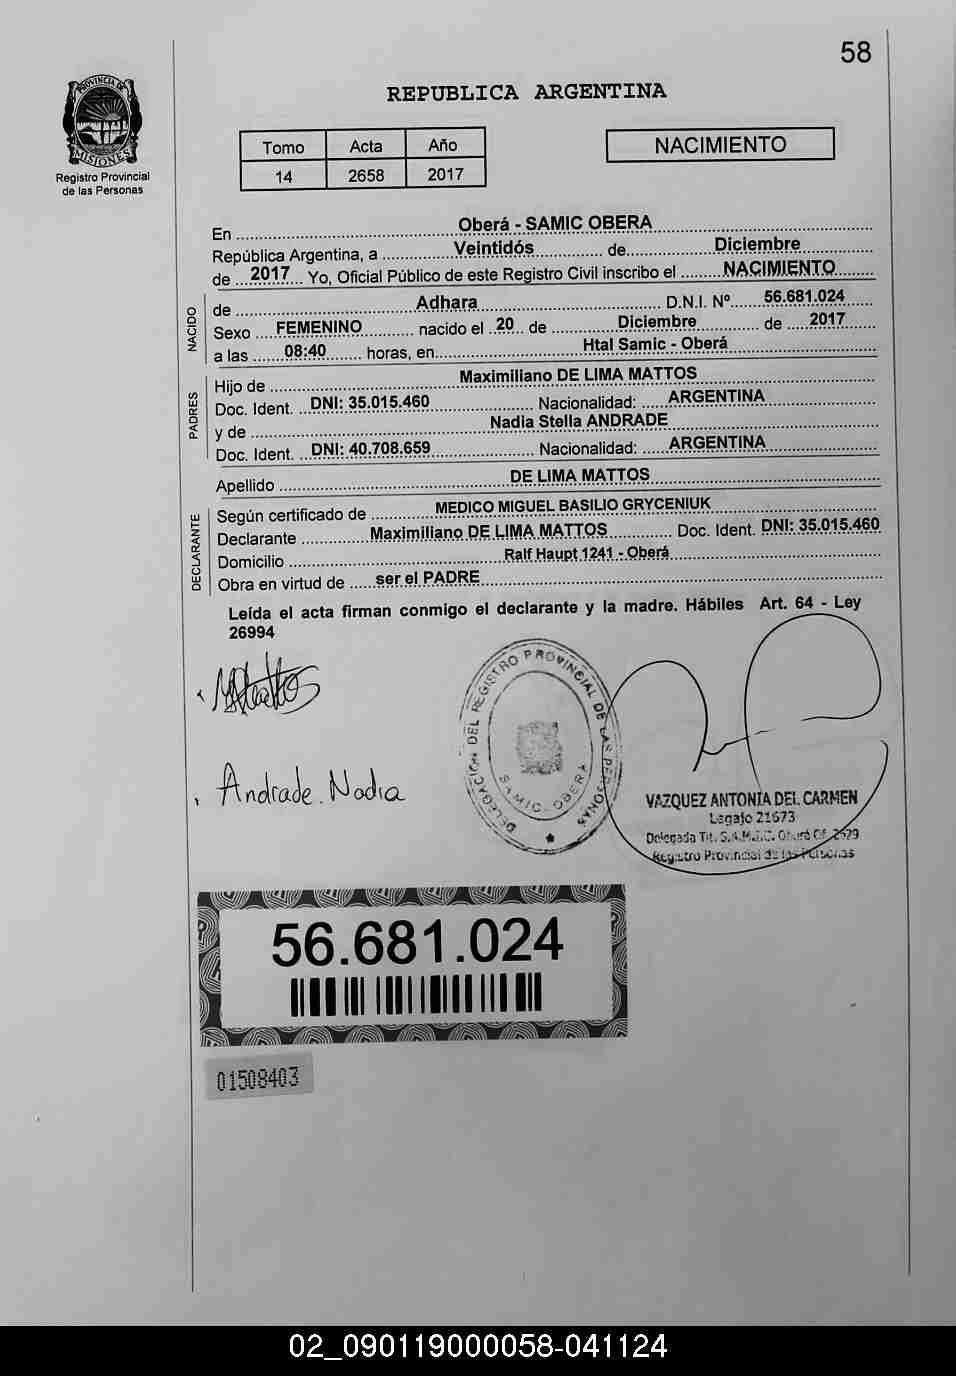 58
PROVINCIA DE
MISIONES
Registro Provincial
de las Personas
REPUBLICA ARGENTINA
Tomo Acta Año
14 2658 2017
NACIMIENTO
En ..... Oberá - SAMIC OBERA .....
República Argentina, a ..... Veintidós ..... de ..... Diciembre .....
de ..... 2017 ..... Yo, Oficial Público de este Registro Civil inscribo el ..... NACIMIENTO .....
NACIDO
de ..... Adhara ..... D.N.I. Nº ..... 56.681.024 .....
Sexo ..... FEMENINO ..... nacido el ..... 20 ..... de ..... Diciembre ..... de ..... 2017 .....
a las ..... 08:40 ..... horas, en ..... Htal Samic - Oberá .....
PADRES
Hijo de ..... Maximiliano DE LIMA MATTOS .....
Doc. Ident. ..... DNI: 35.015.460 ..... Nacionalidad: ..... ARGENTINA .....
y de ..... Nadia Stella ANDRADE .....
Doc. Ident. ..... DNI: 40.708.659 ..... Nacionalidad: ..... ARGENTINA .....
Apellido ..... DE LIMA MATTOS .....
DECLARANTE
Según certificado de ..... MEDICO MIGUEL BASILIO GRYCENIUK .....
Declarante ..... Maximiliano DE LIMA MATTOS ..... Doc. Ident. DNI: 35.015.460
Domicilio ..... Ralf Haupt 1241 - Oberá .....
Obra en virtud de ..... ser el PADRE .....
Leída el acta firman conmigo el declarante y la madre. Hábiles Art. 64 - Ley
26994
DELEGACIÓN DEL REGISTRO PROVINCIAL DE LAS PERSONAS
SAMIC OBERA
Andrade. Nadia
VAZQUEZ ANTONIA DEL CARMEN
Legajo 21673
Delegada Tit. S.A.M.I.C. Oberá Of. 2629
Registro Provincial de las Personas
56.681.024
01508403
02_090119000058-041124